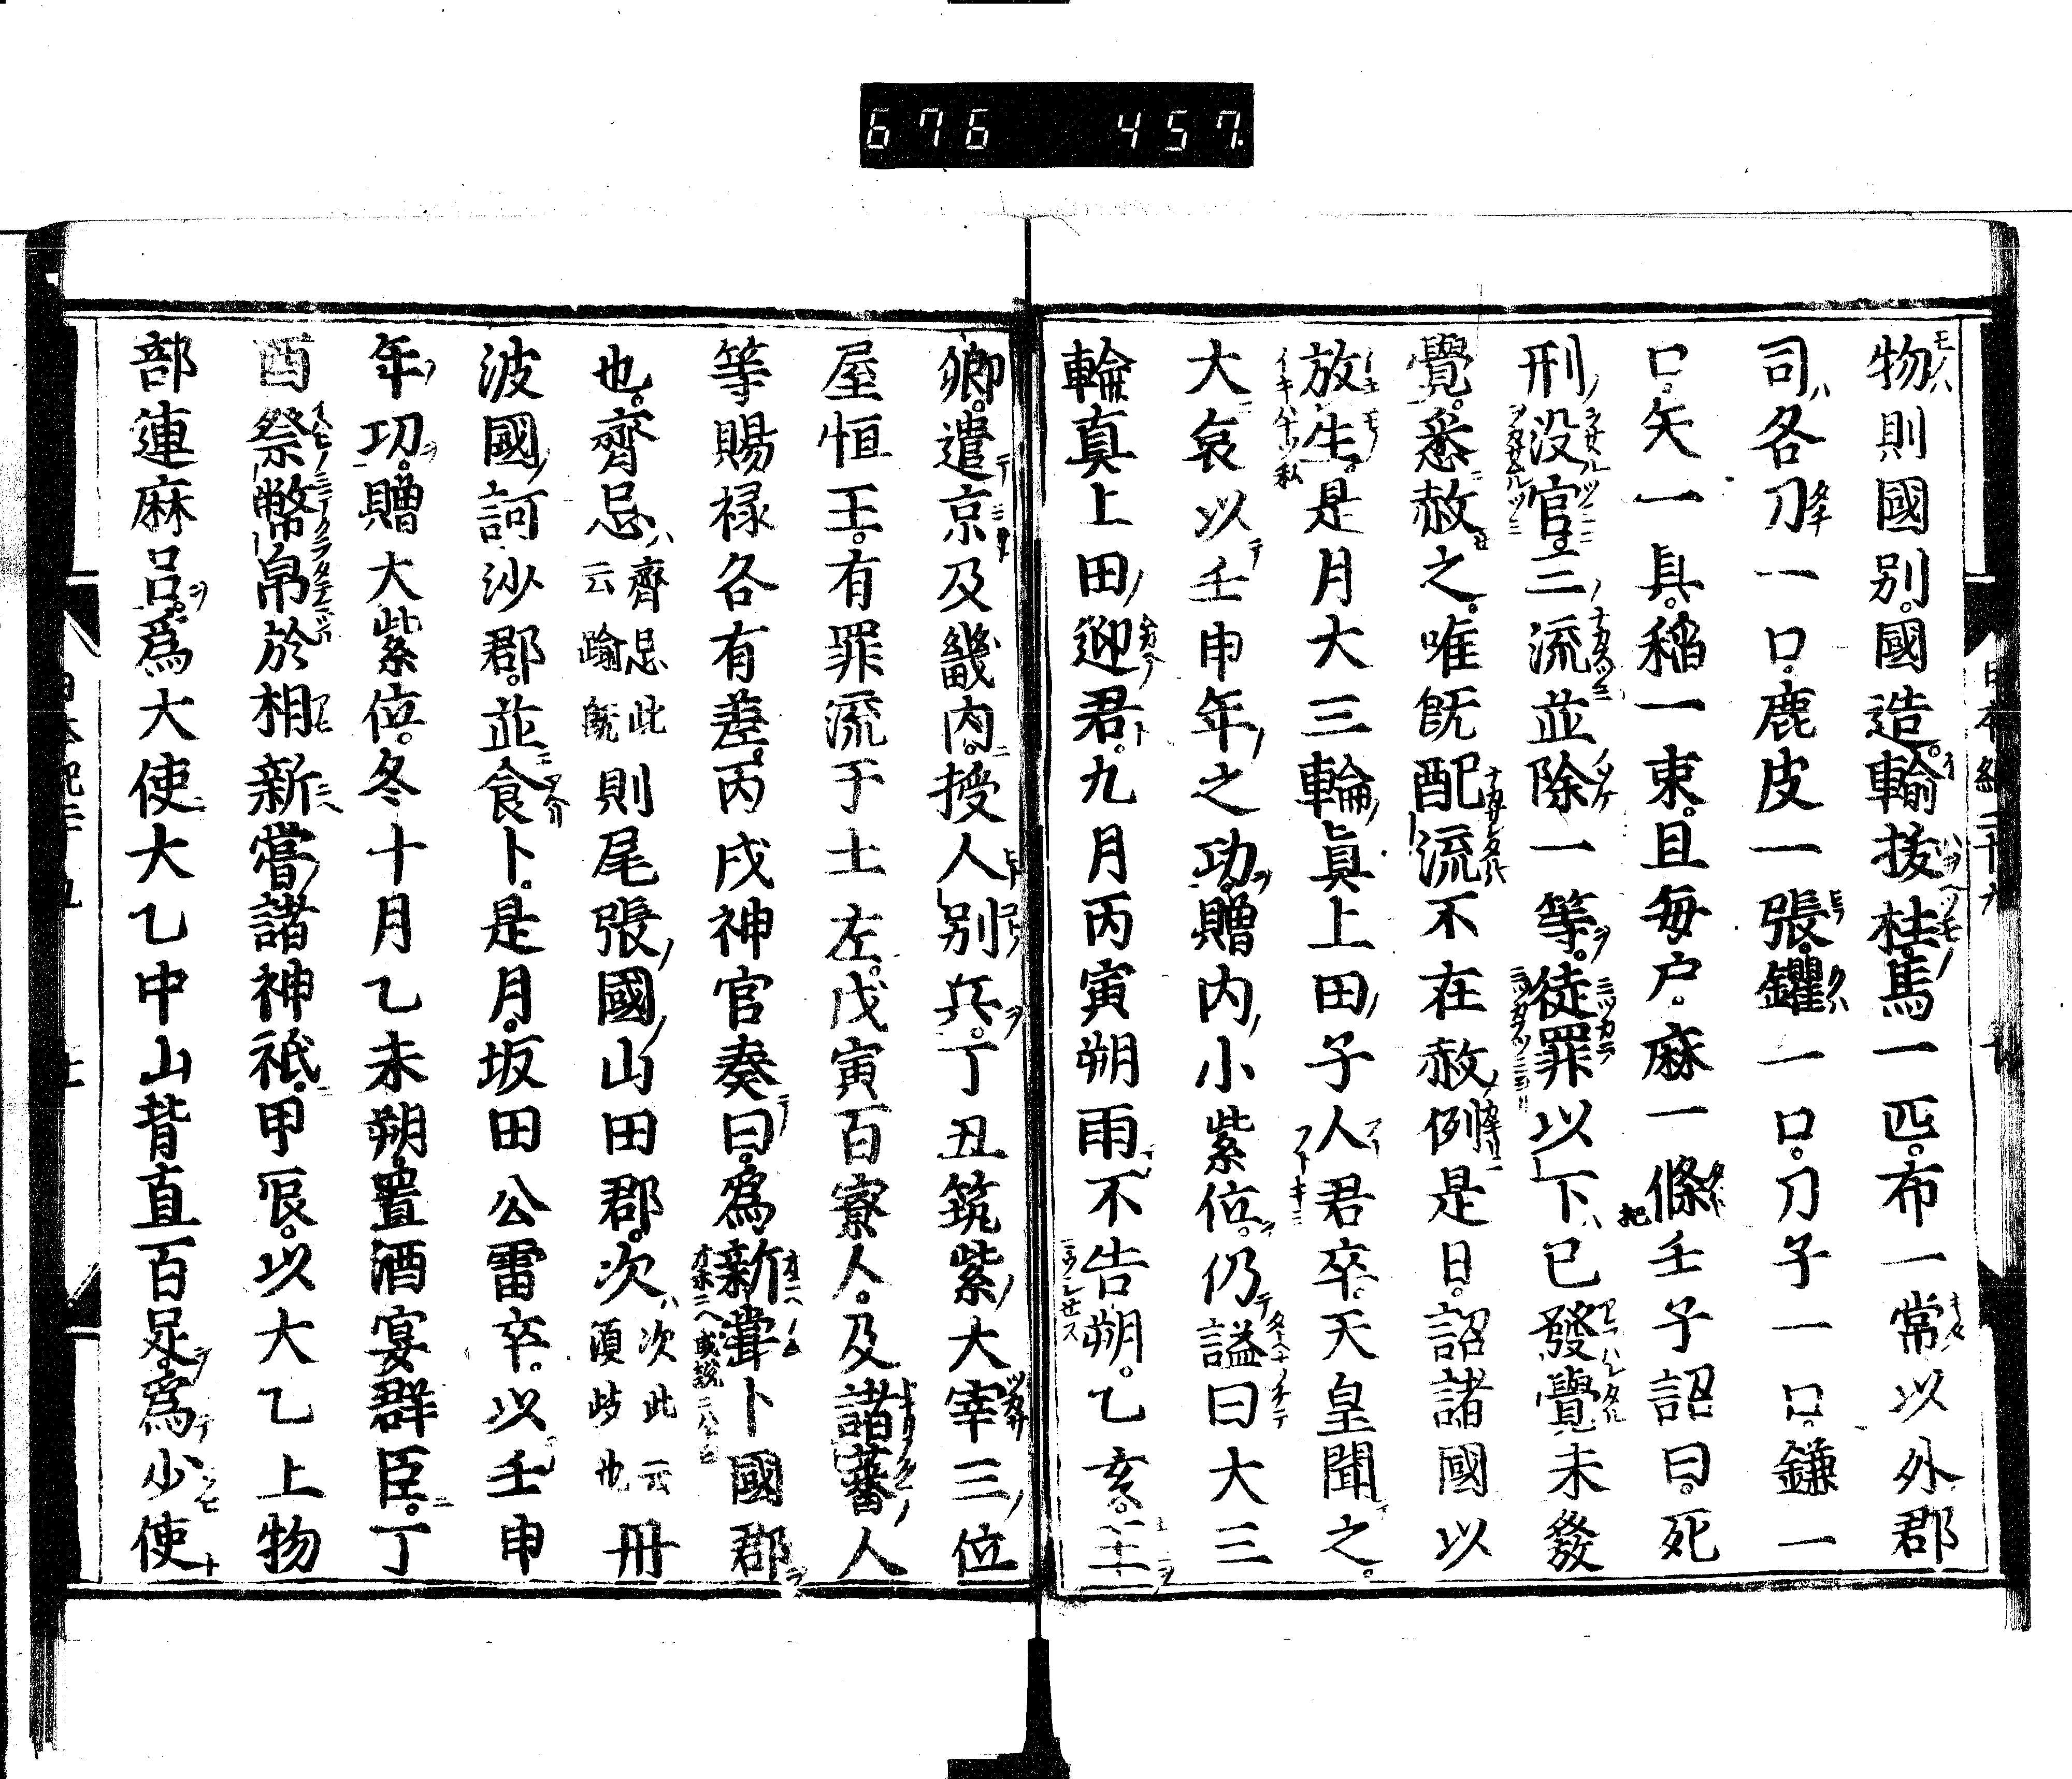 676 457
物則國別。國造。輸抜柱。馬一匹。布一常以外郡
司各刀一口。鹿皮一張。钁一口。刀子一口。鎌一
口。矢一具。稲一束。且毎戸。麻一條壬子詔曰。死
刑没官。三流並除一等。徒罪以下已發覺未發
覺。悉赦之。唯既配流不在赦例是日。詔諸國以
放生。是月大三輪真上田子人君卒。天皇聞之。
大哀以壬申年之功。贈内小紫位。仍謚曰大三
輪真上田迎君。九月丙寅朔雨不告朔。乙亥。王
卿。遣京及畿内。授人別兵。丁丑筑紫大宰三位
屋恒王。有罪流于土左。戊寅百寮人。及諸蕃人
等賜禄各有差。丙戌神官奏曰。為新甞卜國郡
也。齊忌 齊忌此云踰既 則尾張國山田郡。次 次此云須歧也 丹
波國訶沙郡。並食卜。是月。坂田公雷卒。以壬申
年功。贈大紫位。冬十月乙未朔。置酒宴群臣。丁
酉祭幣帛於相新嘗諸神祇。甲辰。以大乙上物
部連麻呂。爲大使大乙中山背直百足。爲少使